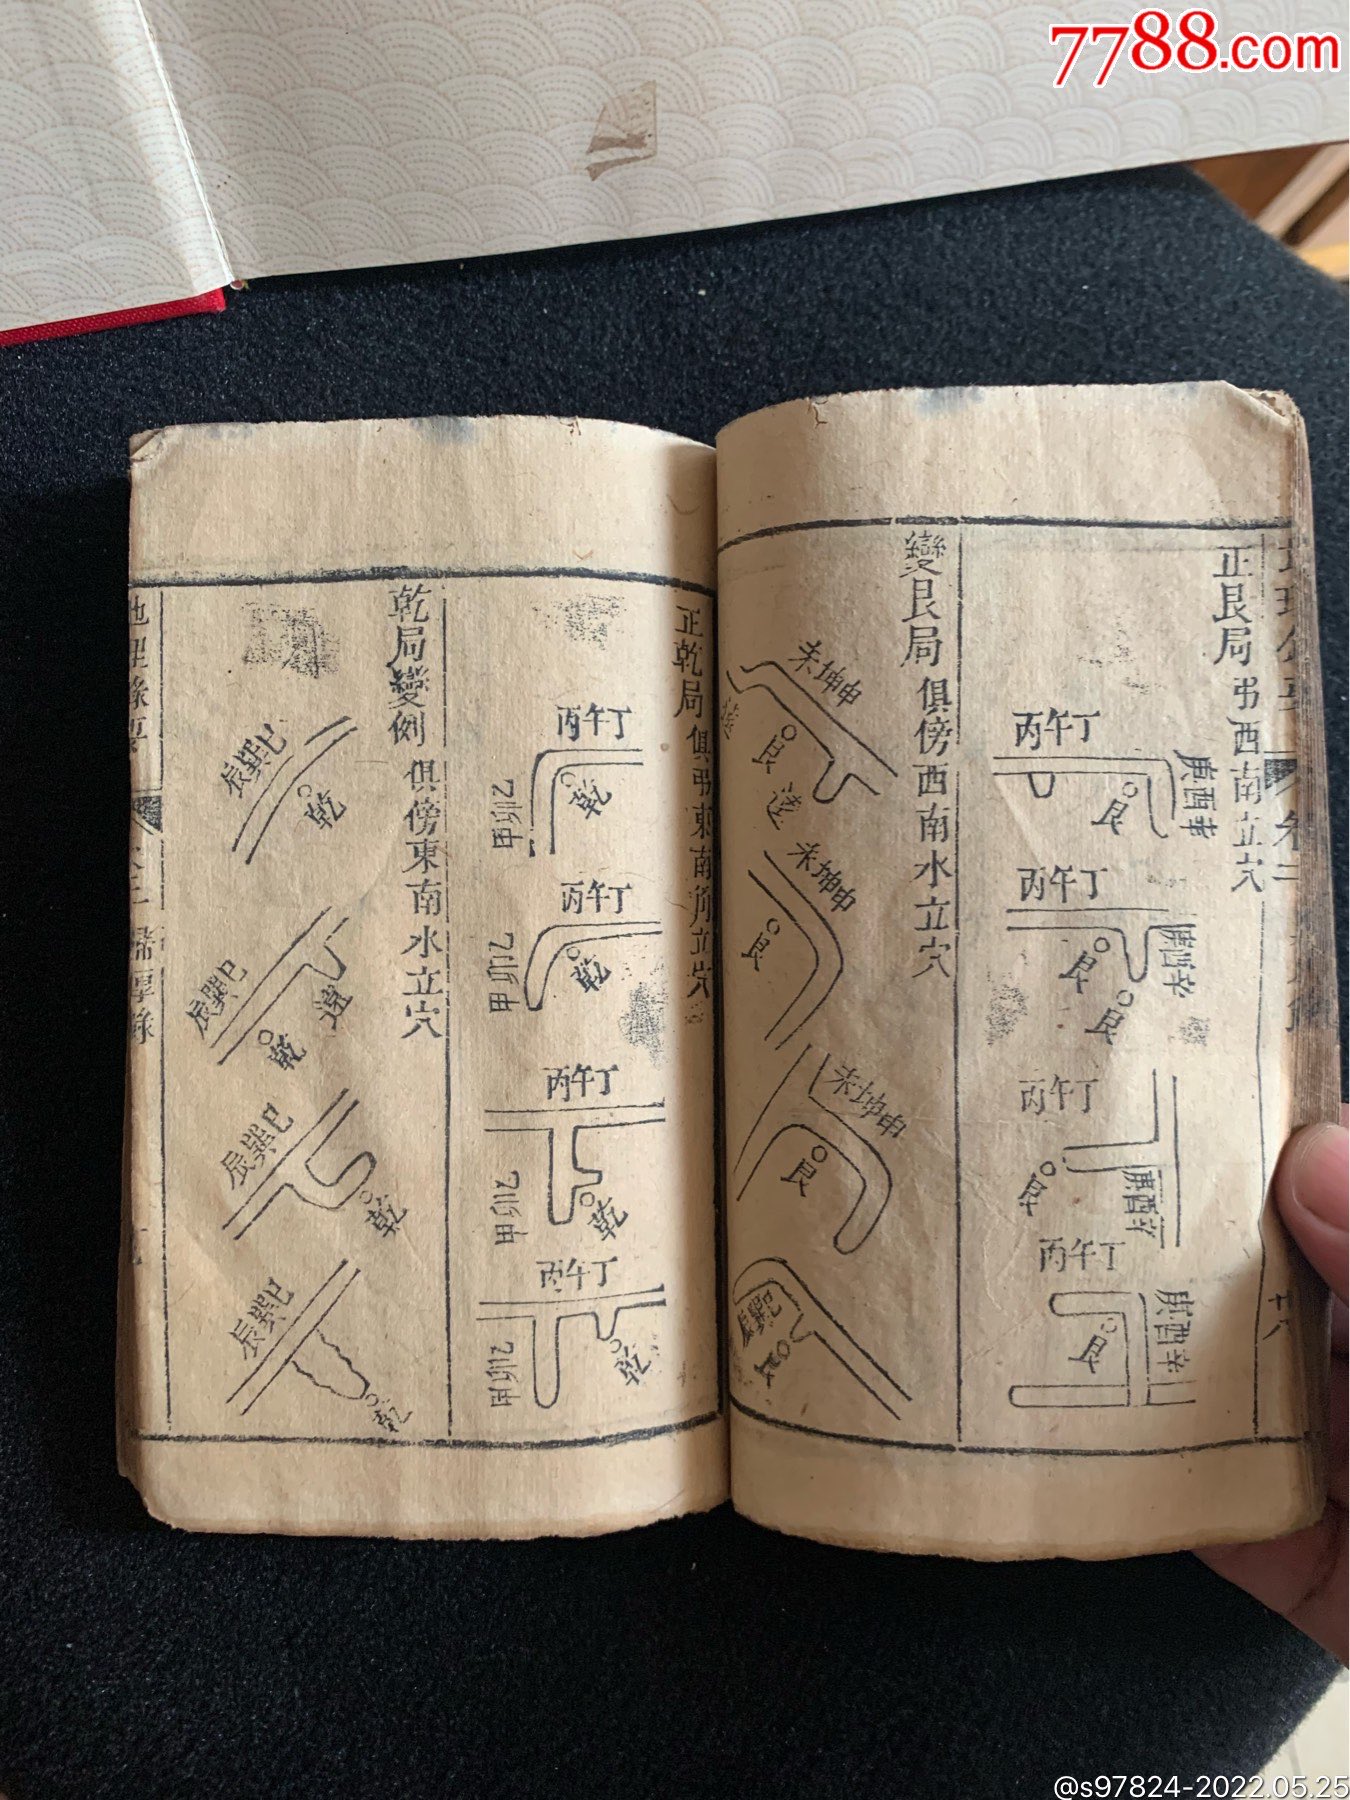 7788.com
正艮局 弔西南立穴
丙午丁
庚酉辛
艮
丙午丁
庚酉辛
艮
艮
丙午丁
庚酉辛
艮
丙午丁
庚酉辛
艮
變艮局 俱傍西南水立穴
未坤申
艮
未坤申
艮
未坤申
艮
辰巽巳
艮
正乾局 俱弔東南角立穴
丙午丁
乙卯甲
乾
丙午丁
乙卯甲
乾
丙午丁
乙卯甲
乾
丙午丁
乙卯甲
乾
乾局變例 俱傍東南水立穴
辰巽巳
乾
辰巽巳
乾
辰巽巳
乾
辰巽巳
乾
@s97824-2022.05.25